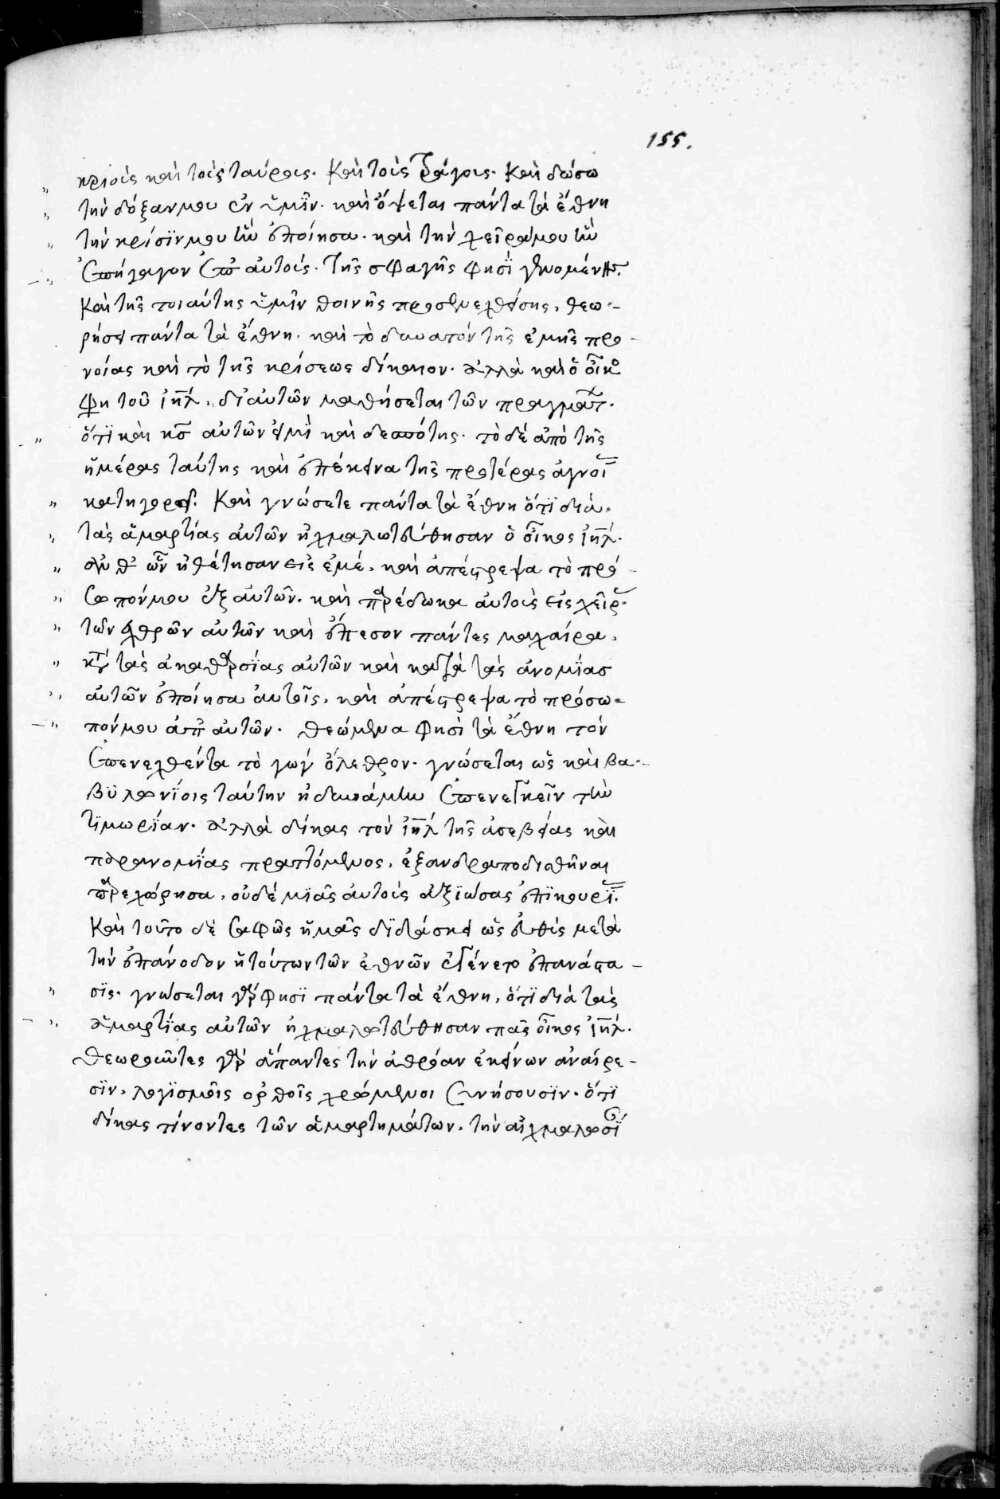 155.
κριοῖς καὶ τοῖς ταύροις. καὶ τοῖς τράγοις. καὶ δώσω
τὴν δόξαν μου ἐν ὑμῖν. καὶ ὄψεται πάντα τὰ ἔθνη
τὴν κρίσϊν μου ἣν ἐποίησα. καὶ τὴν χεῖρα μου ἣν
ἐπήγαγον ἐπ' αὐτοίς. τῆς σφαγῆς φησὶ γϊνομένης.
καὶ τῆς τοιαύτης ὑμῖν θοινῆς προσενεχθείσης, θεω-
ρήσει πάντα τὰ ἔθνη. καὶ τὸ δυνατόν τῆς ἐμῆς προ-
νοίας καὶ τὸ τῆς κρίσεως δίκαιον. ἀλλὰ καὶ ὁ οἶκος
φη τοῦ ἰηλ, δι αὐτῶν μαθήσεται τῶν πραγμάτ.
ὅτϊ καὶ κς αὐτῶν εἰμὶ καὶ δεσπότης. τὸ δὲ ἀπὸ τῆς
ἡμέρας ταύτης καὶ ἐπέκεινα τῆς προτέρας ἀγνοί
κατηγορεῖ. καὶ γνώσεται πάντα τὰ ἔθνη ὅτϊ διὰ
τὰς ἁμαρτίας αὐτῶν ἠχμαλωτεύθησαν ὁ οἶκος ἰηλ.
ἀνθ' ὧν ἠθέτησαν εἰς ἐμέ. καὶ ἀπέστρεψα τὸ πρό-
σωπόν μου ἐξ αὐτῶν. καὶ παρέδωκα αὐτοὺς εἰς χεῖρ.
τῶν ἐχθρῶν αὐτῶν καὶ ἔπεσον πάντες μαχαίρα.
κατὰ τὰς ἀκαθαρσίας αὐτῶν καὶ κατὰ τὰς ἀνομίας
αὐτῶν ἐποίησα αὐτοῖς, καὶ ἀπέστρεψα τὸ πρόσω-
πόν μου ἀπ' αὐτῶν. θεώμενα φησὶ τὰ ἔθνη τὸν
ἐπενεχθέντα τὸ γωγ ὄλεθρον. γνώσεται ὡς καὶ βα-
βϋλωνίοις ταύτην ἠδυνάμην ἐπενεγκεῖν τὴν
τϊμωρίαν. ἀλλὰ δίκας τὸν ἰηλ τῆς ἀσεβείας καὶ
παρανομίας πραττόμενος, ἐξανδραποδισθῆναι
παρεχώρησα, οὐδέ μιᾶς αὐτοὺς ἀξϊώσας ἐπϊκουρί.
καὶ τοῦτο δὲ σαφῶς ἡμᾶς διδάσκει ὡς εὐθὺς μετὰ
τὴν ἐπάνοδον ἡ τούτων τῶν ἐθνῶν ἐγένετο ἐπανάστα-
σϊς. γνώσεται γὰρ φησὶ πάντα τὰ ἔθνη, ὅτϊ διὰ τὰς
ἁμαρτίας αὐτῶν ἠχμαλωτεύθησαν πᾶς οἶκος ἰηλ.
θεωροῦντες γὰρ ἅπαντες τὴν ἀθρόαν ἐκείνων ἀναίρε-
σϊν, λογϊσμοῖς ὀρθοῖς χρώμενοι συνήσουσϊν. ὅτϊ
δίκας τίνοντες τῶν ἁμαρτημάτων. τὴν αἰχμαλωσί